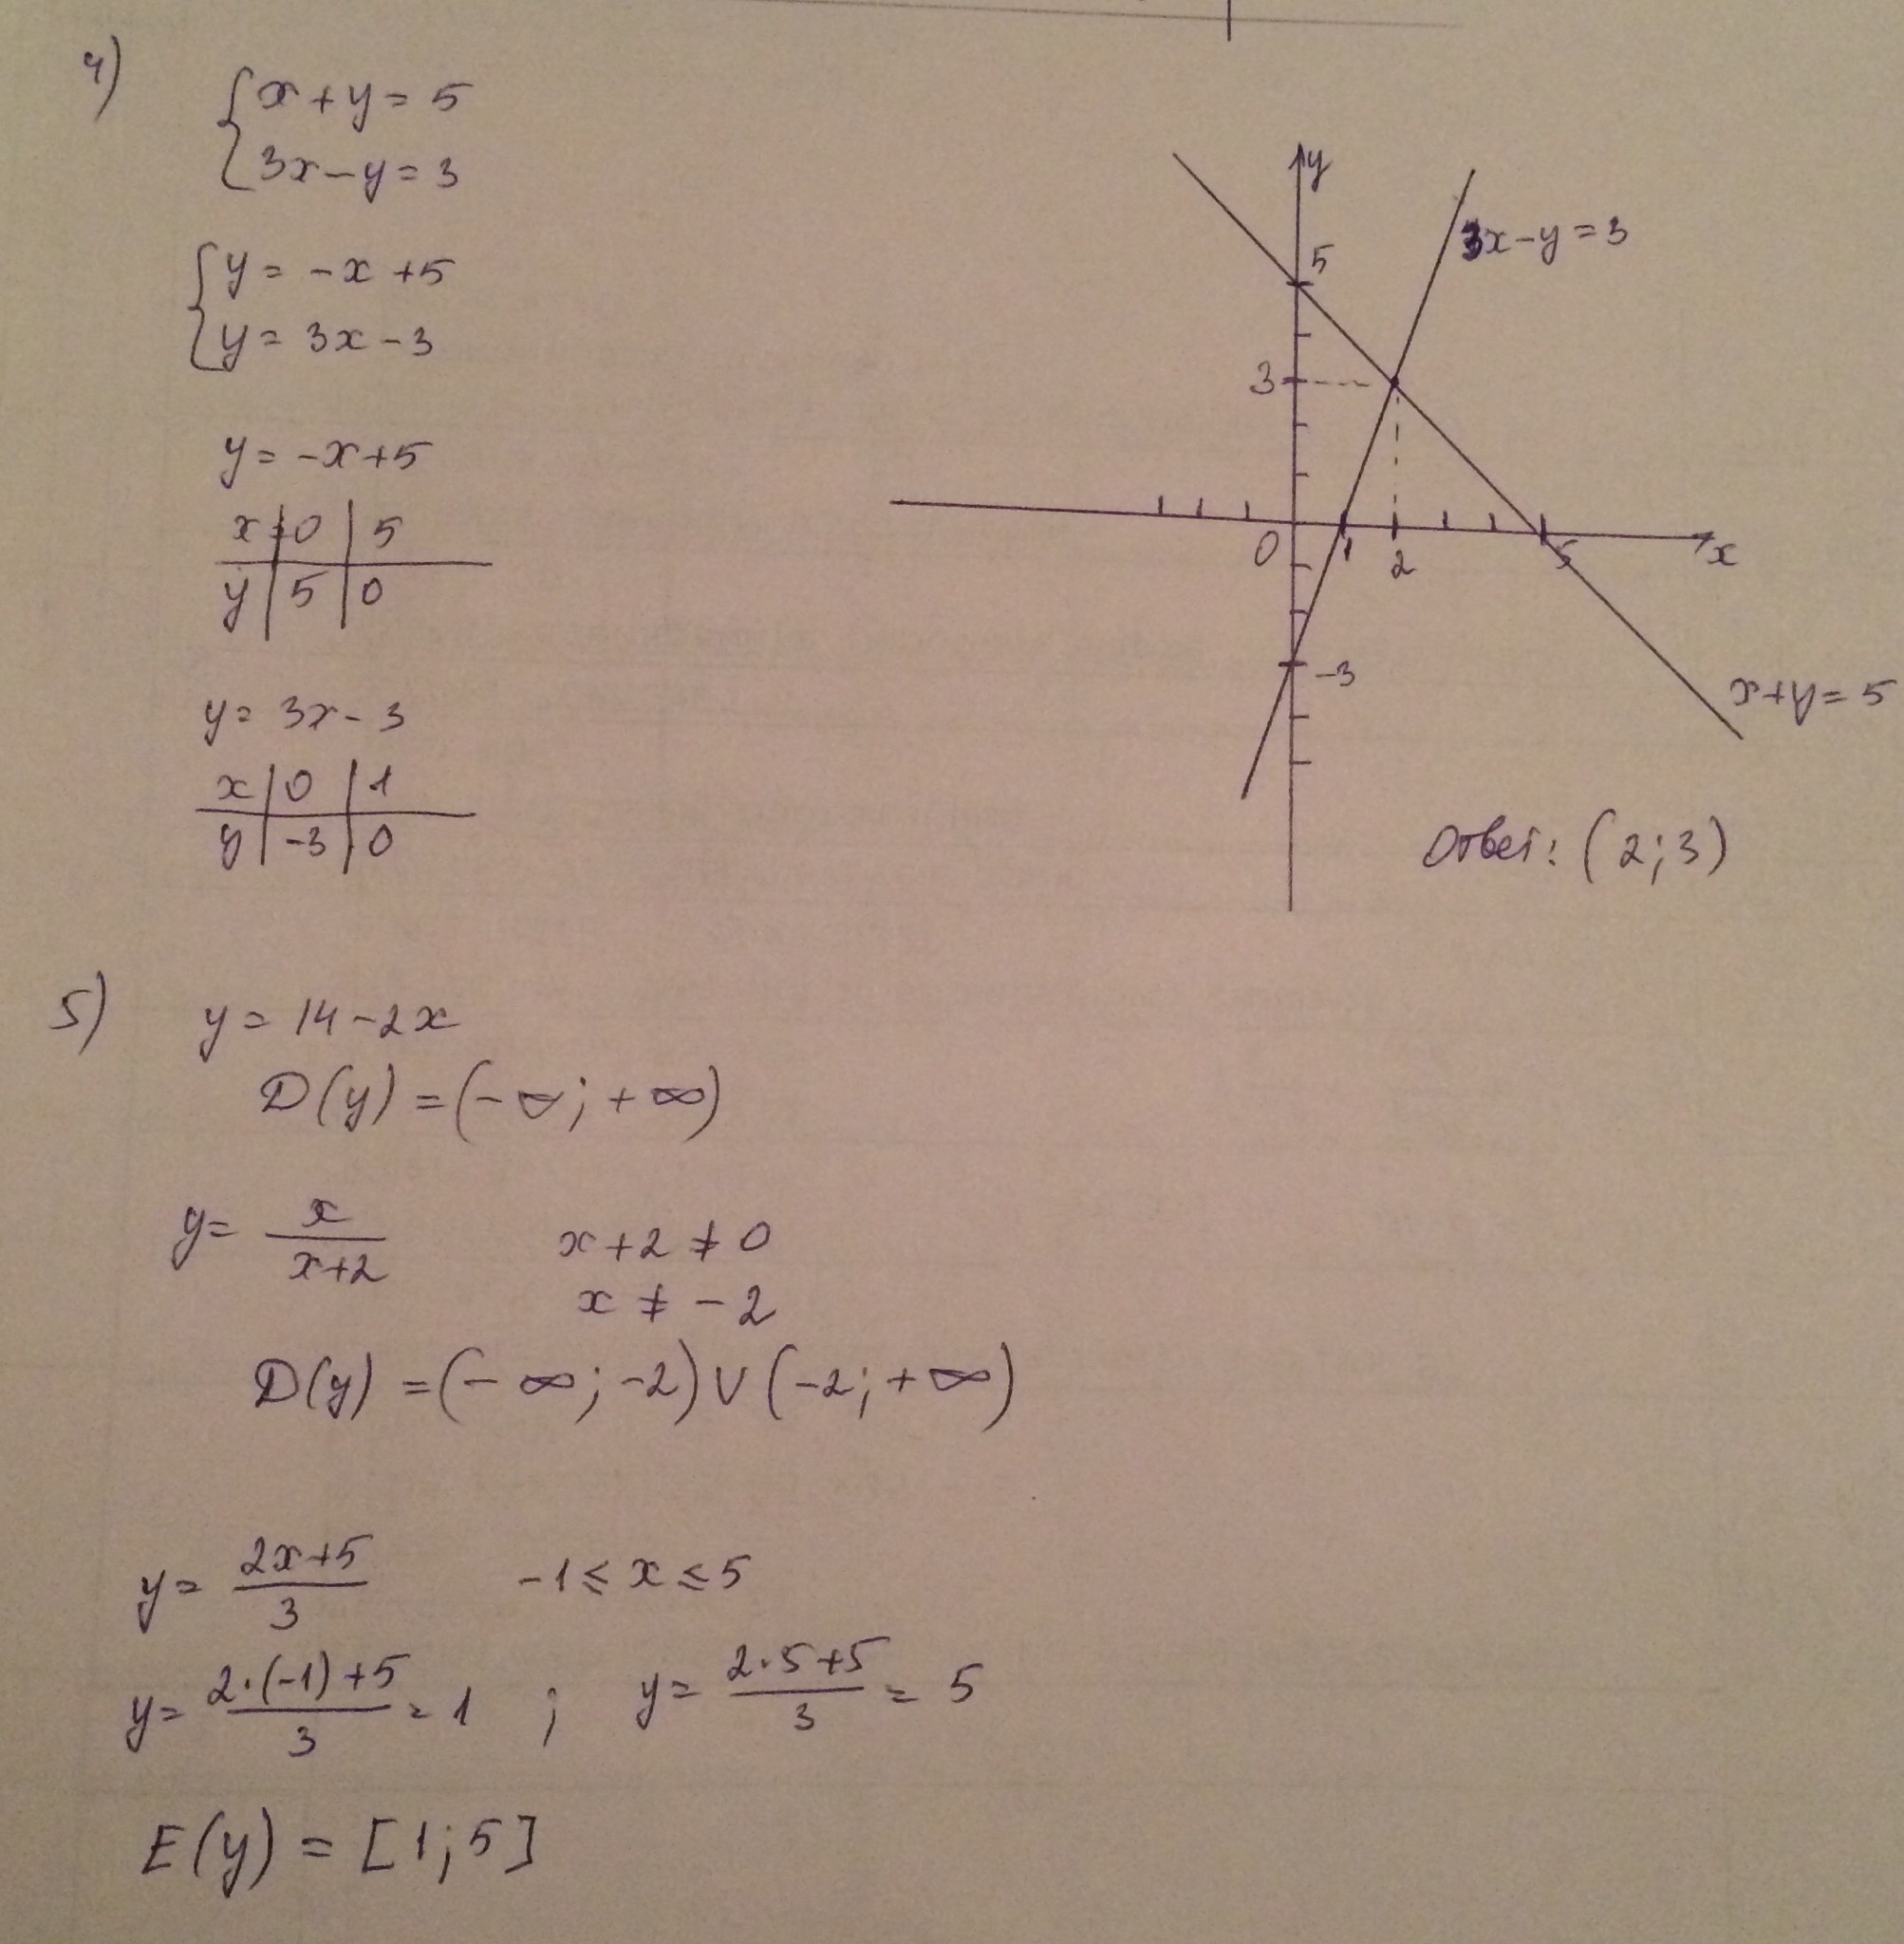 4)
{ x + y = 5
3x - y = 3
{ y = -x + 5
y = 3x - 3
y = -x + 5
x | 0 | 5
y | 5 | 0
y = 3x - 3
x | 0 | 1
y | -3 | 0
y
3x - y = 3
5
3
0 1 2 5 x
-3
x + y = 5
Ответ: (2; 3)
5)
y = 14 - 2x
D(y) = (-∞; +∞)
y = x/(x+2) x + 2 ≠ 0
x ≠ -2
D(y) = (-∞; -2) ∪ (-2; +∞)
y = (2x+5)/3 -1 ⩽ x ⩽ 5
y = (2·(-1)+5)/3 = 1 ; y = (2·5+5)/3 = 5
E(y) = [1; 5]